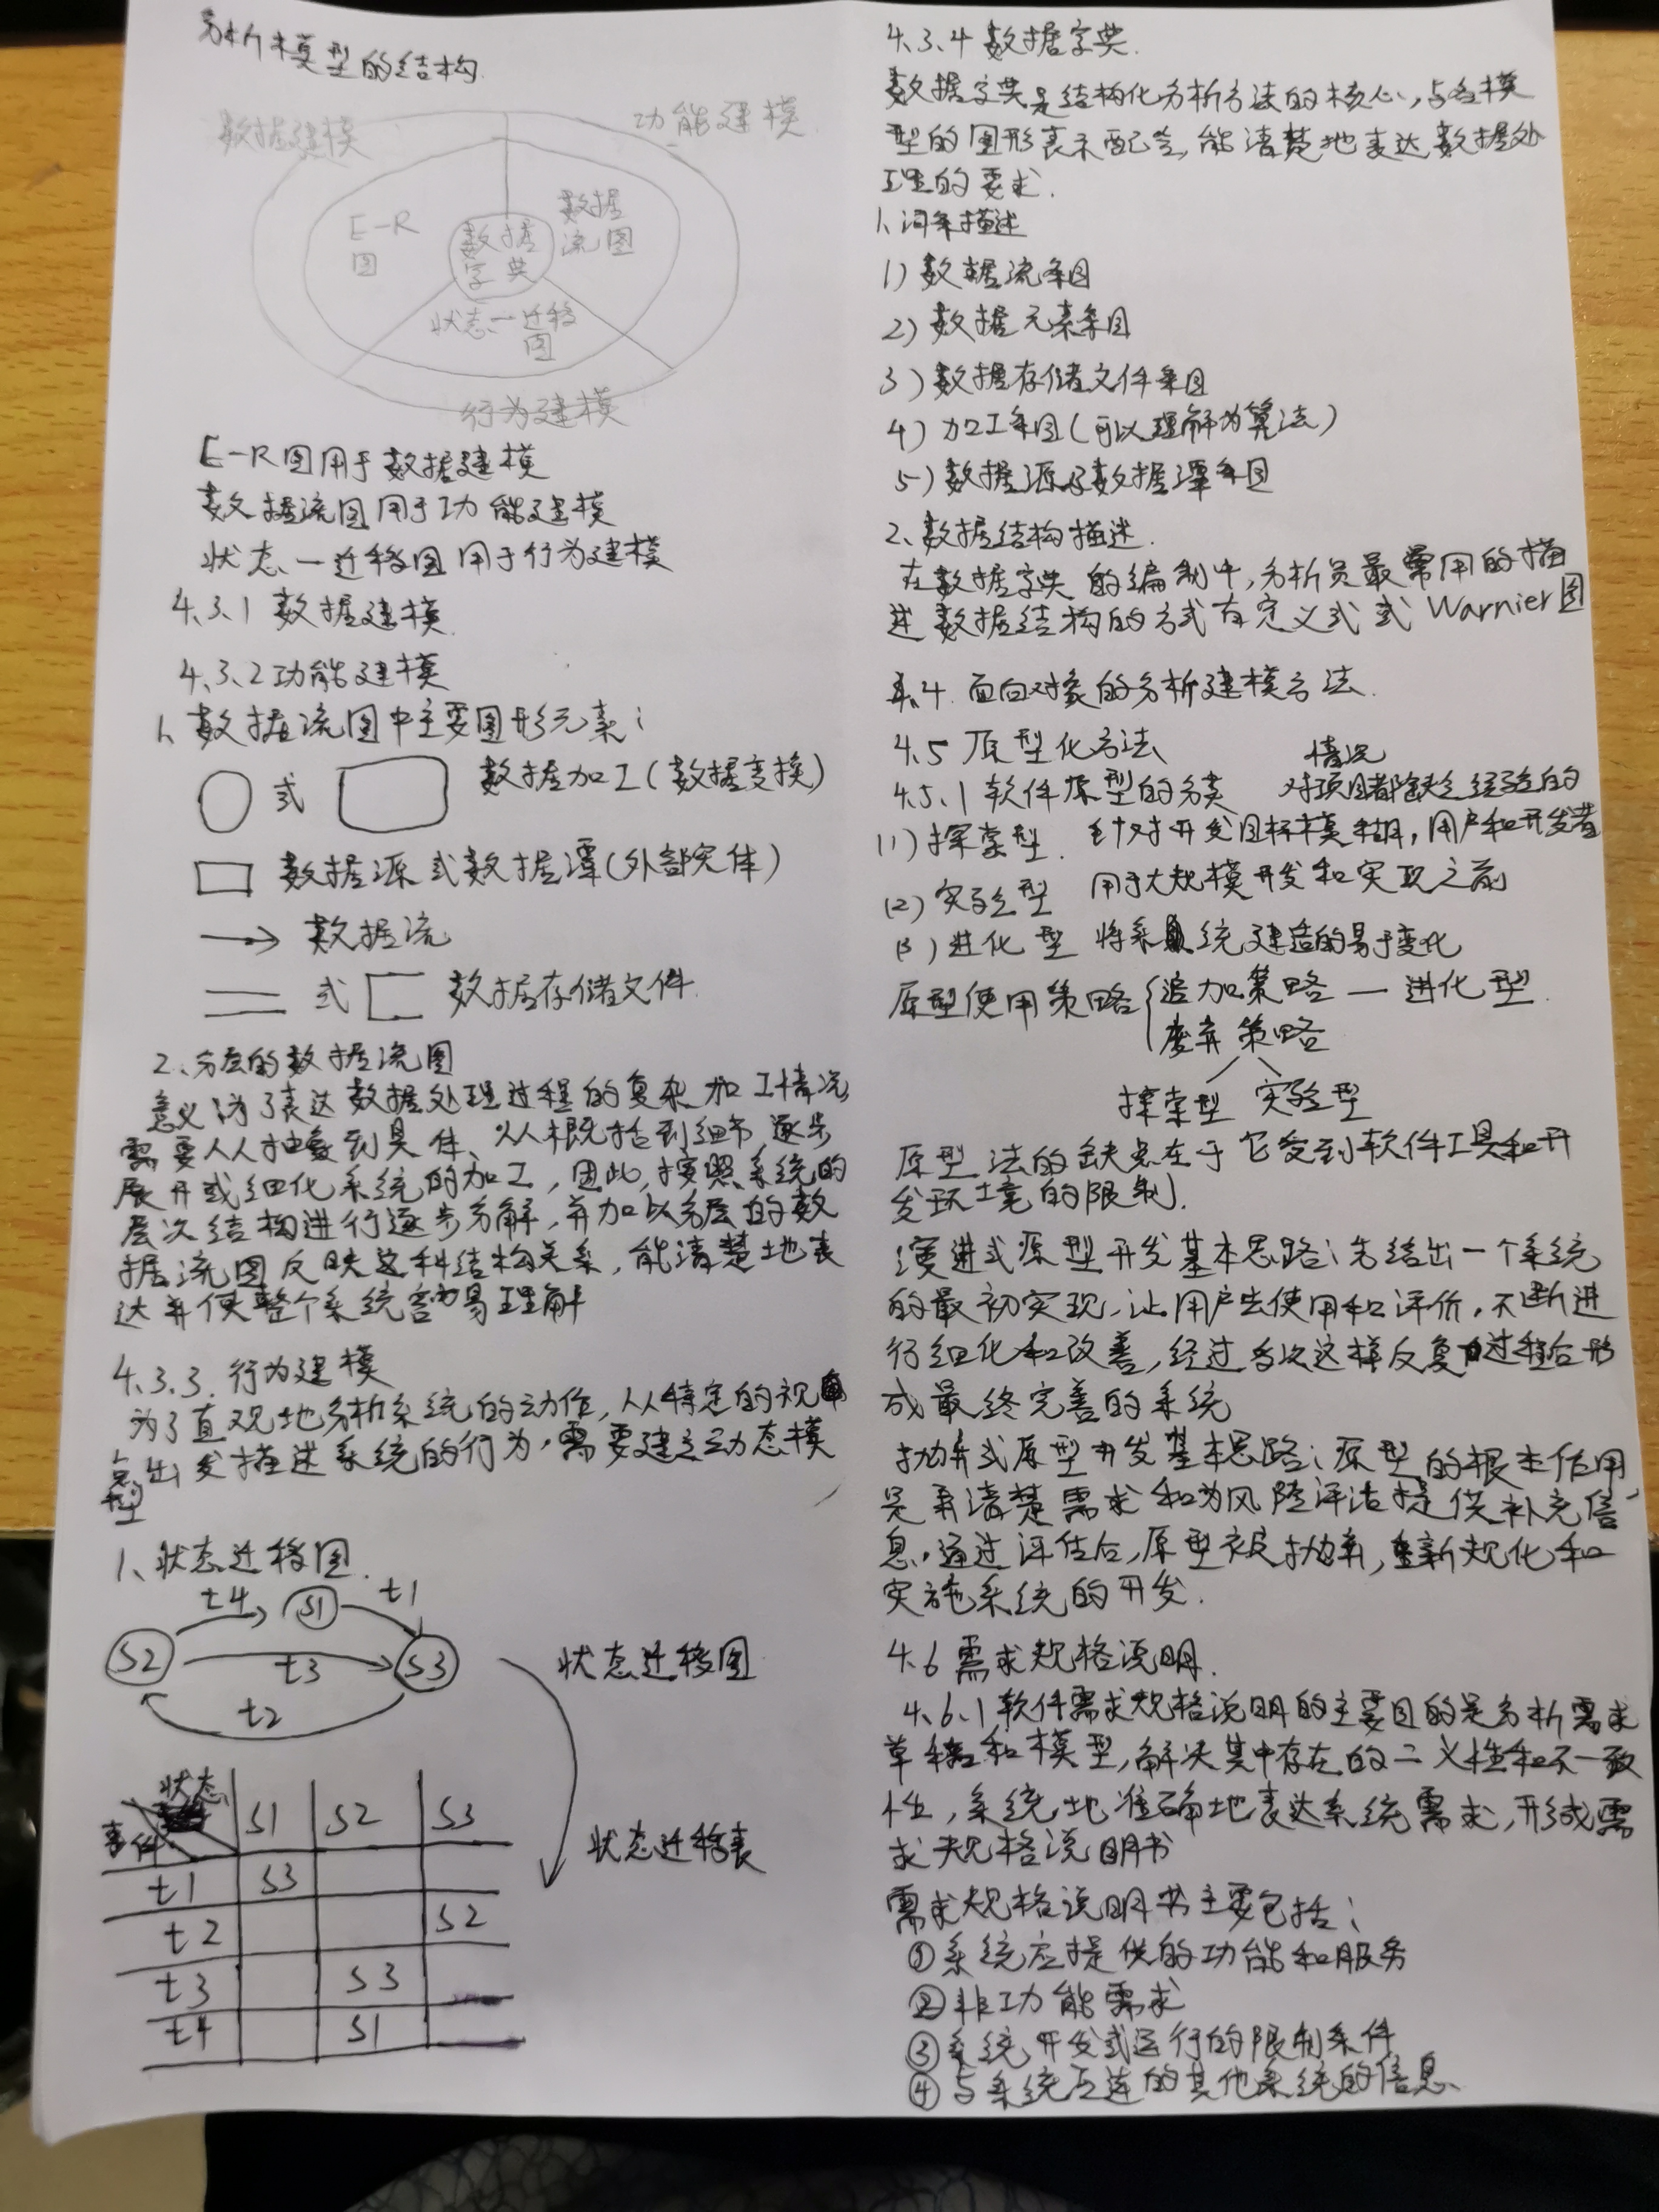 分析模型的结构
数据建模
功能建模
E-R
图
数据
字典
数据
流图
状态-迁移
图
行为建模
E-R图用于数据建模
数据流图用于功能建模
状态-迁移图用于行为建模
4.3.1 数据建模
4.3.2 功能建模
1、数据流图中主要图形元素:
或 数据加工(数据变换)
数据源或数据潭(外部实体)
数据流
或 数据存储文件
2、分层的数据流图
意义:为了表达数据处理过程的复杂加工情况
需要从抽象到具体、从概括到细节,逐步
展开或细化系统的加工,因此,按照系统的
层次结构进行逐步分解,并加以分层的数
据流图反映这种结构关系,能清楚地表
达并使整个系统容易理解
4.3.3. 行为建模
为了直观地分析系统的动作,从特定的视
点出发描述系统的行为,需要建立动态模
型
1、状态迁移图.
t4 S1 t1
S2 t3 S3
t2
状态迁移图
状态迁移表
状态
事件 S1 S2 S3
t1 S3
t2 S2
t3 S3
t4 S1
4.3.4 数据字典.
数据字典是结构化分析方法的核心,与各模
型的图形表示配合,能清楚地表达数据处
理的要求.
1、词条描述
1) 数据流条目
2) 数据元素条目
3) 数据存储文件条目
4) 加工条目(可以理解为算法)
5) 数据源及数据潭条目
2、数据结构描述.
在数据字典的编制中,分析员最常用的描
述数据结构的方式有定义式或Warnier图
4.4. 面向对象的分析建模方法.
4.5 原型化方法
4.5.1 软件原型的分类
(1) 探索型. 针对开发目标模糊,用户和开发者
对项目都缺乏经验的
情况
(2) 实验型 用于大规模开发和实现之前
(3) 进化型 将系统建造的易于变化
原型使用策略{追加策略—进化型.
废弃策略
探索型 实验型
原型法的缺点在于它受到软件工具和开
发环境的限制.
演进式原型开发基本思路:先给出一个系统
的最初实现,让用户去使用和评价,不断进
行细化和改善,经过多次这样反复过程后形
成最终完善的系统
抛弃式原型开发基本思路:原型的根本作用
是弄清楚需求和为风险评估提供补充信
息,通过评估后,原型被抛弃,重新规化和
实施系统的开发.
4.6 需求规格说明.
4.6.1 软件需求规格说明的主要目的是分析需求
草稿和模型,解决其中存在的二义性和不一致
性,系统地准确地表达系统需求,形成需
求规格说明书
需求规格说明书主要包括:
①系统应提供的功能和服务
②非功能需求
③系统开发或运行的限制条件
④与系统互连的其他系统的信息.